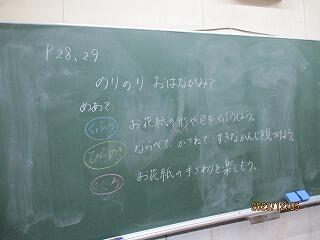 P28、29
のりのり おはながみで
めあて
くふう お花紙の形や色をくふうしよう。
ひらめき ならべて、かさねて すきなかんじを見つけよう。
こころ お花紙の手ざわりを楽しもう。